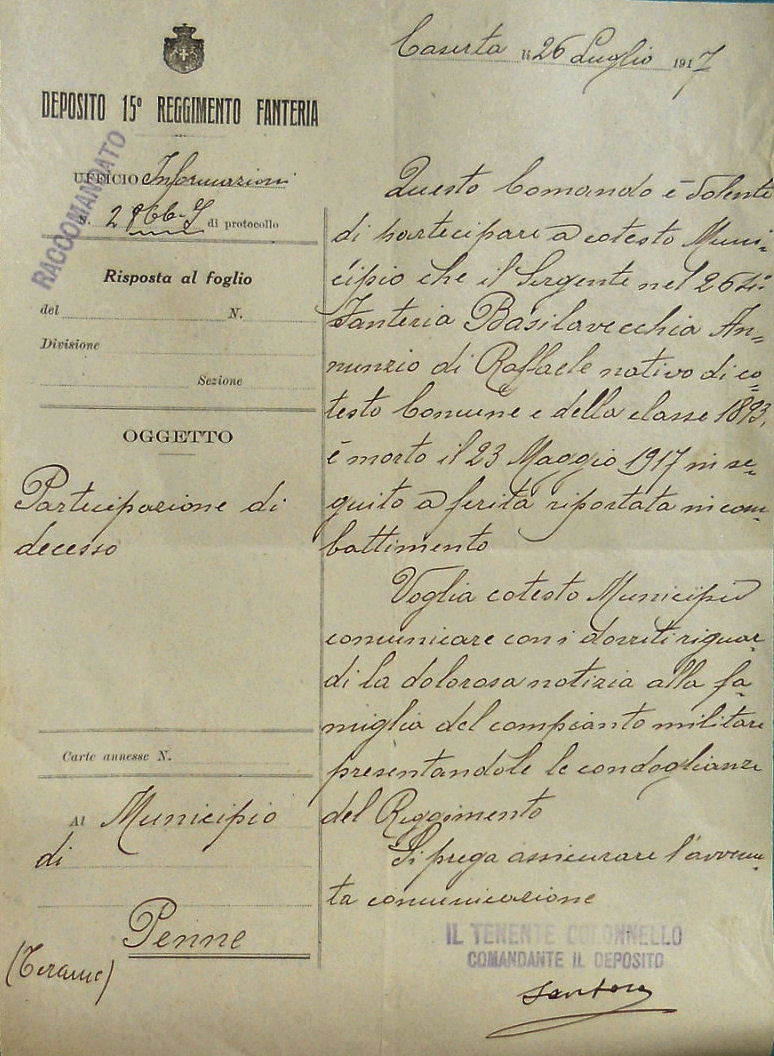 Caserta li 26 Luglio 1917
DEPOSITO 15º REGGIMENTO FANTERIA
RACCOMANDATO
UFFICIO Informazioni
N. di protocollo
Risposta al foglio
del N.
Divisione
Sezione
OGGETTO
Partecipazione di
decesso
Carte annesse N.
Al Municipio
di
Penne
(Teramo)
Questo Comando è dolente
di partecipare a cotesto Muni-
cipio che il Sergente nel 264º
Fanteria Basilavecchia An-
nunzio di Raffaele nativo di co-
testo Comune e della classe 1893,
è morto il 23 Maggio 1917 in se-
guito a ferita riportata in com-
battimento
Voglia cotesto Municipio
comunicare con i dovuti riguar-
di la dolorosa notizia alla fa-
miglia del compianto militare
presentandole le condoglianze
del Reggimento
Si prega assicurare l'avvenu-
ta comunicazione
IL TENENTE COLONNELLO
COMANDANTE IL DEPOSITO